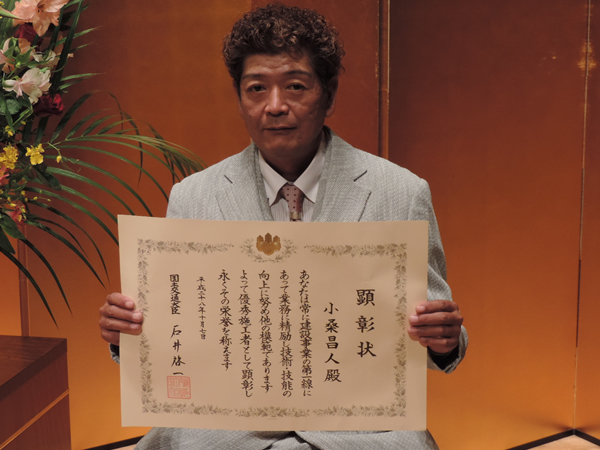 顕彰状
小桑昌人殿
あなたは常に建設事業の第一線に
あって業務に精励し技術・技能の
向上に努め他の模範であります
よって優秀施工者として顕彰し
永くその栄誉を称えます
平成二十八年十月七日
国土交通大臣 石井啓一